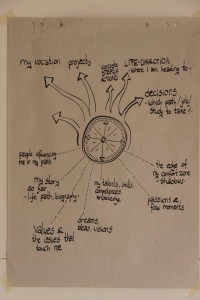 my vocation
projects
concrete
STEPS &
ACTIONS
LIFE-DIRECTION
- where I am heading to -
decisions
- which path / job/
study to take? -
people influencing
me in my path
my story
so far
- life path, biography -
values &
the issues that
touch me
dreams,
ideas, visions
my talents, skills,
competences
knowledge
passions &
flow moments
the edge of
my comfort zone
- shadows -